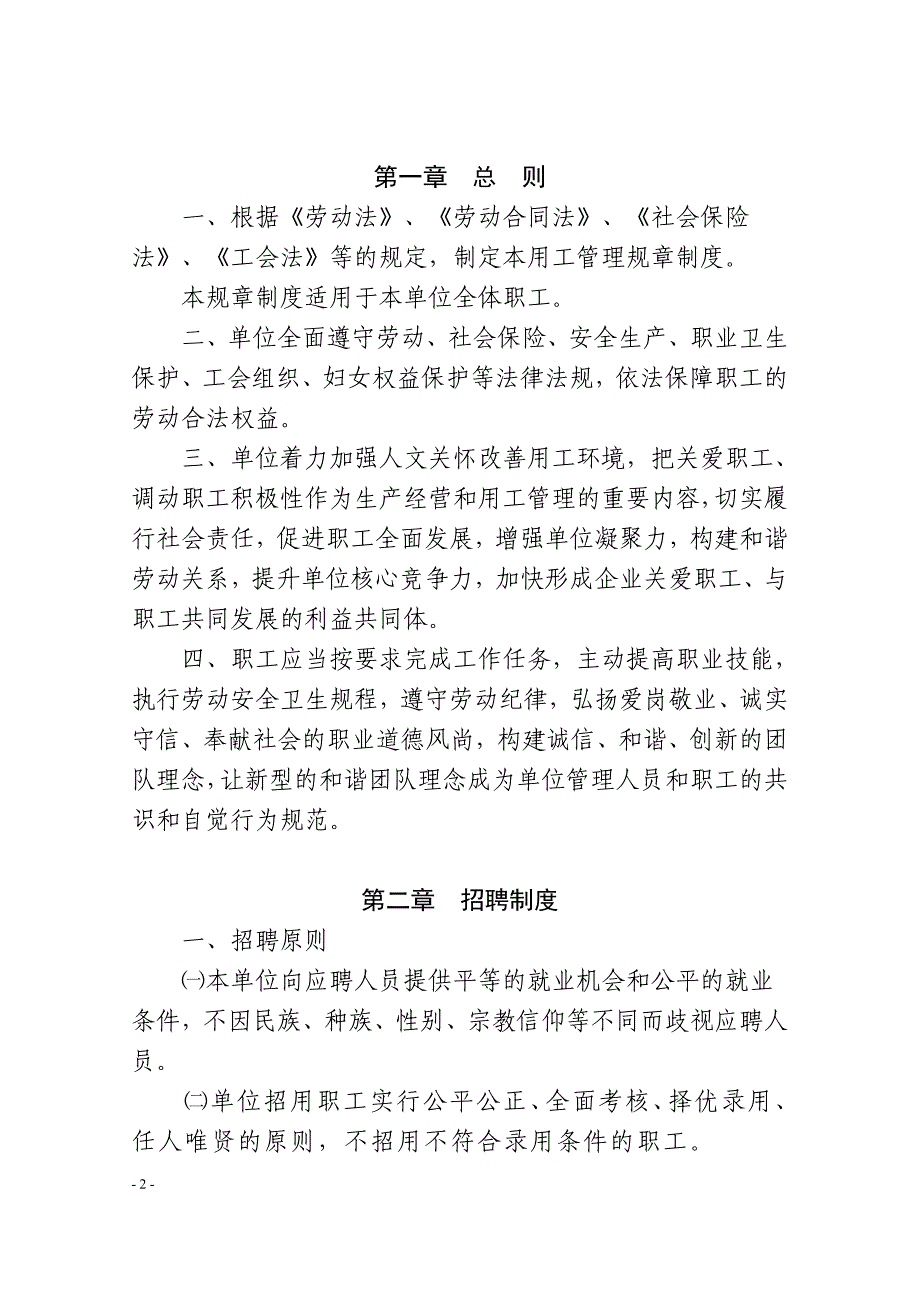 第一章　总　则
一、根据《劳动法》、《劳动合同法》、《社会保险
法》、《工会法》等的规定，制定本用工管理规章制度。
本规章制度适用于本单位全体职工。
二、单位全面遵守劳动、社会保险、安全生产、职业卫生
保护、工会组织、妇女权益保护等法律法规，依法保障职工的
劳动合法权益。
三、单位着力加强人文关怀改善用工环境，把关爱职工、
调动职工积极性作为生产经营和用工管理的重要内容，切实履
行社会责任，促进职工全面发展，增强单位凝聚力，构建和谐
劳动关系，提升单位核心竞争力，加快形成企业关爱职工、与
职工共同发展的利益共同体。
四、职工应当按要求完成工作任务，主动提高职业技能，
执行劳动安全卫生规程，遵守劳动纪律，弘扬爱岗敬业、诚实
守信、奉献社会的职业道德风尚，构建诚信、和谐、创新的团
队理念，让新型的和谐团队理念成为单位管理人员和职工的共
识和自觉行为规范。
第二章　招聘制度
一、招聘原则
㈠本单位向应聘人员提供平等的就业机会和公平的就业
条件，不因民族、种族、性别、宗教信仰等不同而歧视应聘人
员。
㈡单位招用职工实行公平公正、全面考核、择优录用、
任人唯贤的原则，不招用不符合录用条件的职工。
- 2 -